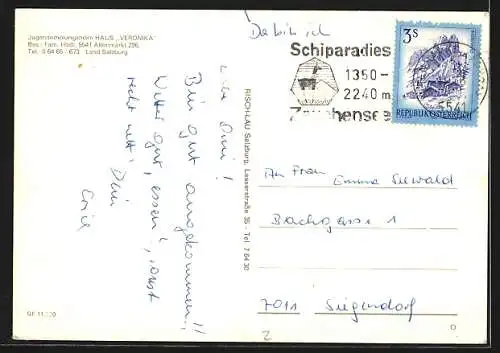 Jugenderholungsheim HAUS „VERONIKA"
Bes.: Fam. Hödl, 5541 Altenmarkt 296,
Tel. 0 64 65 - 673 Land Salzburg
Da bin ich
Schiparadies
1350 –
2240 m
Zauchensee
3 S
REPUBLIK ÖSTERREICH
5541
Liebe Omi!
Bin gut angekommen!!
Wetter gut, essen!, sonst
recht nett! Dein
RISCH-LAU Salzburg, Lasserstraße 35 - Tel. 7 64 30
An Frau Emma Seewald
Bachgasse 1
7011 Siegendorf